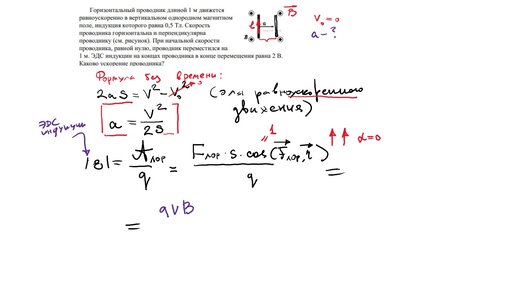 Горизонтальный проводник длиной 1 м движется
равноускоренно в вертикальном однородном магнитном
поле, индукция которого равна 0,5 Тл. Скорость
проводника горизонтальна и перпендикулярна
проводнику (см. рисунок). При начальной скорости
проводника, равной нулю, проводник переместился на
1 м. ЭДС индукции на концах проводника в конце перемещения равна 2 В.
Каково ускорение проводника?
B
V₀ = 0
a - ?
Формула без времени:
2aS = V² - V₀² → 0
(для равноускоренного
движения)
a = V² / 2S
ЭДС
индукции
|ε| = Aлор / q = Fлор · S · cos(Fлор, r) / q =
1
α = 0
= qVB